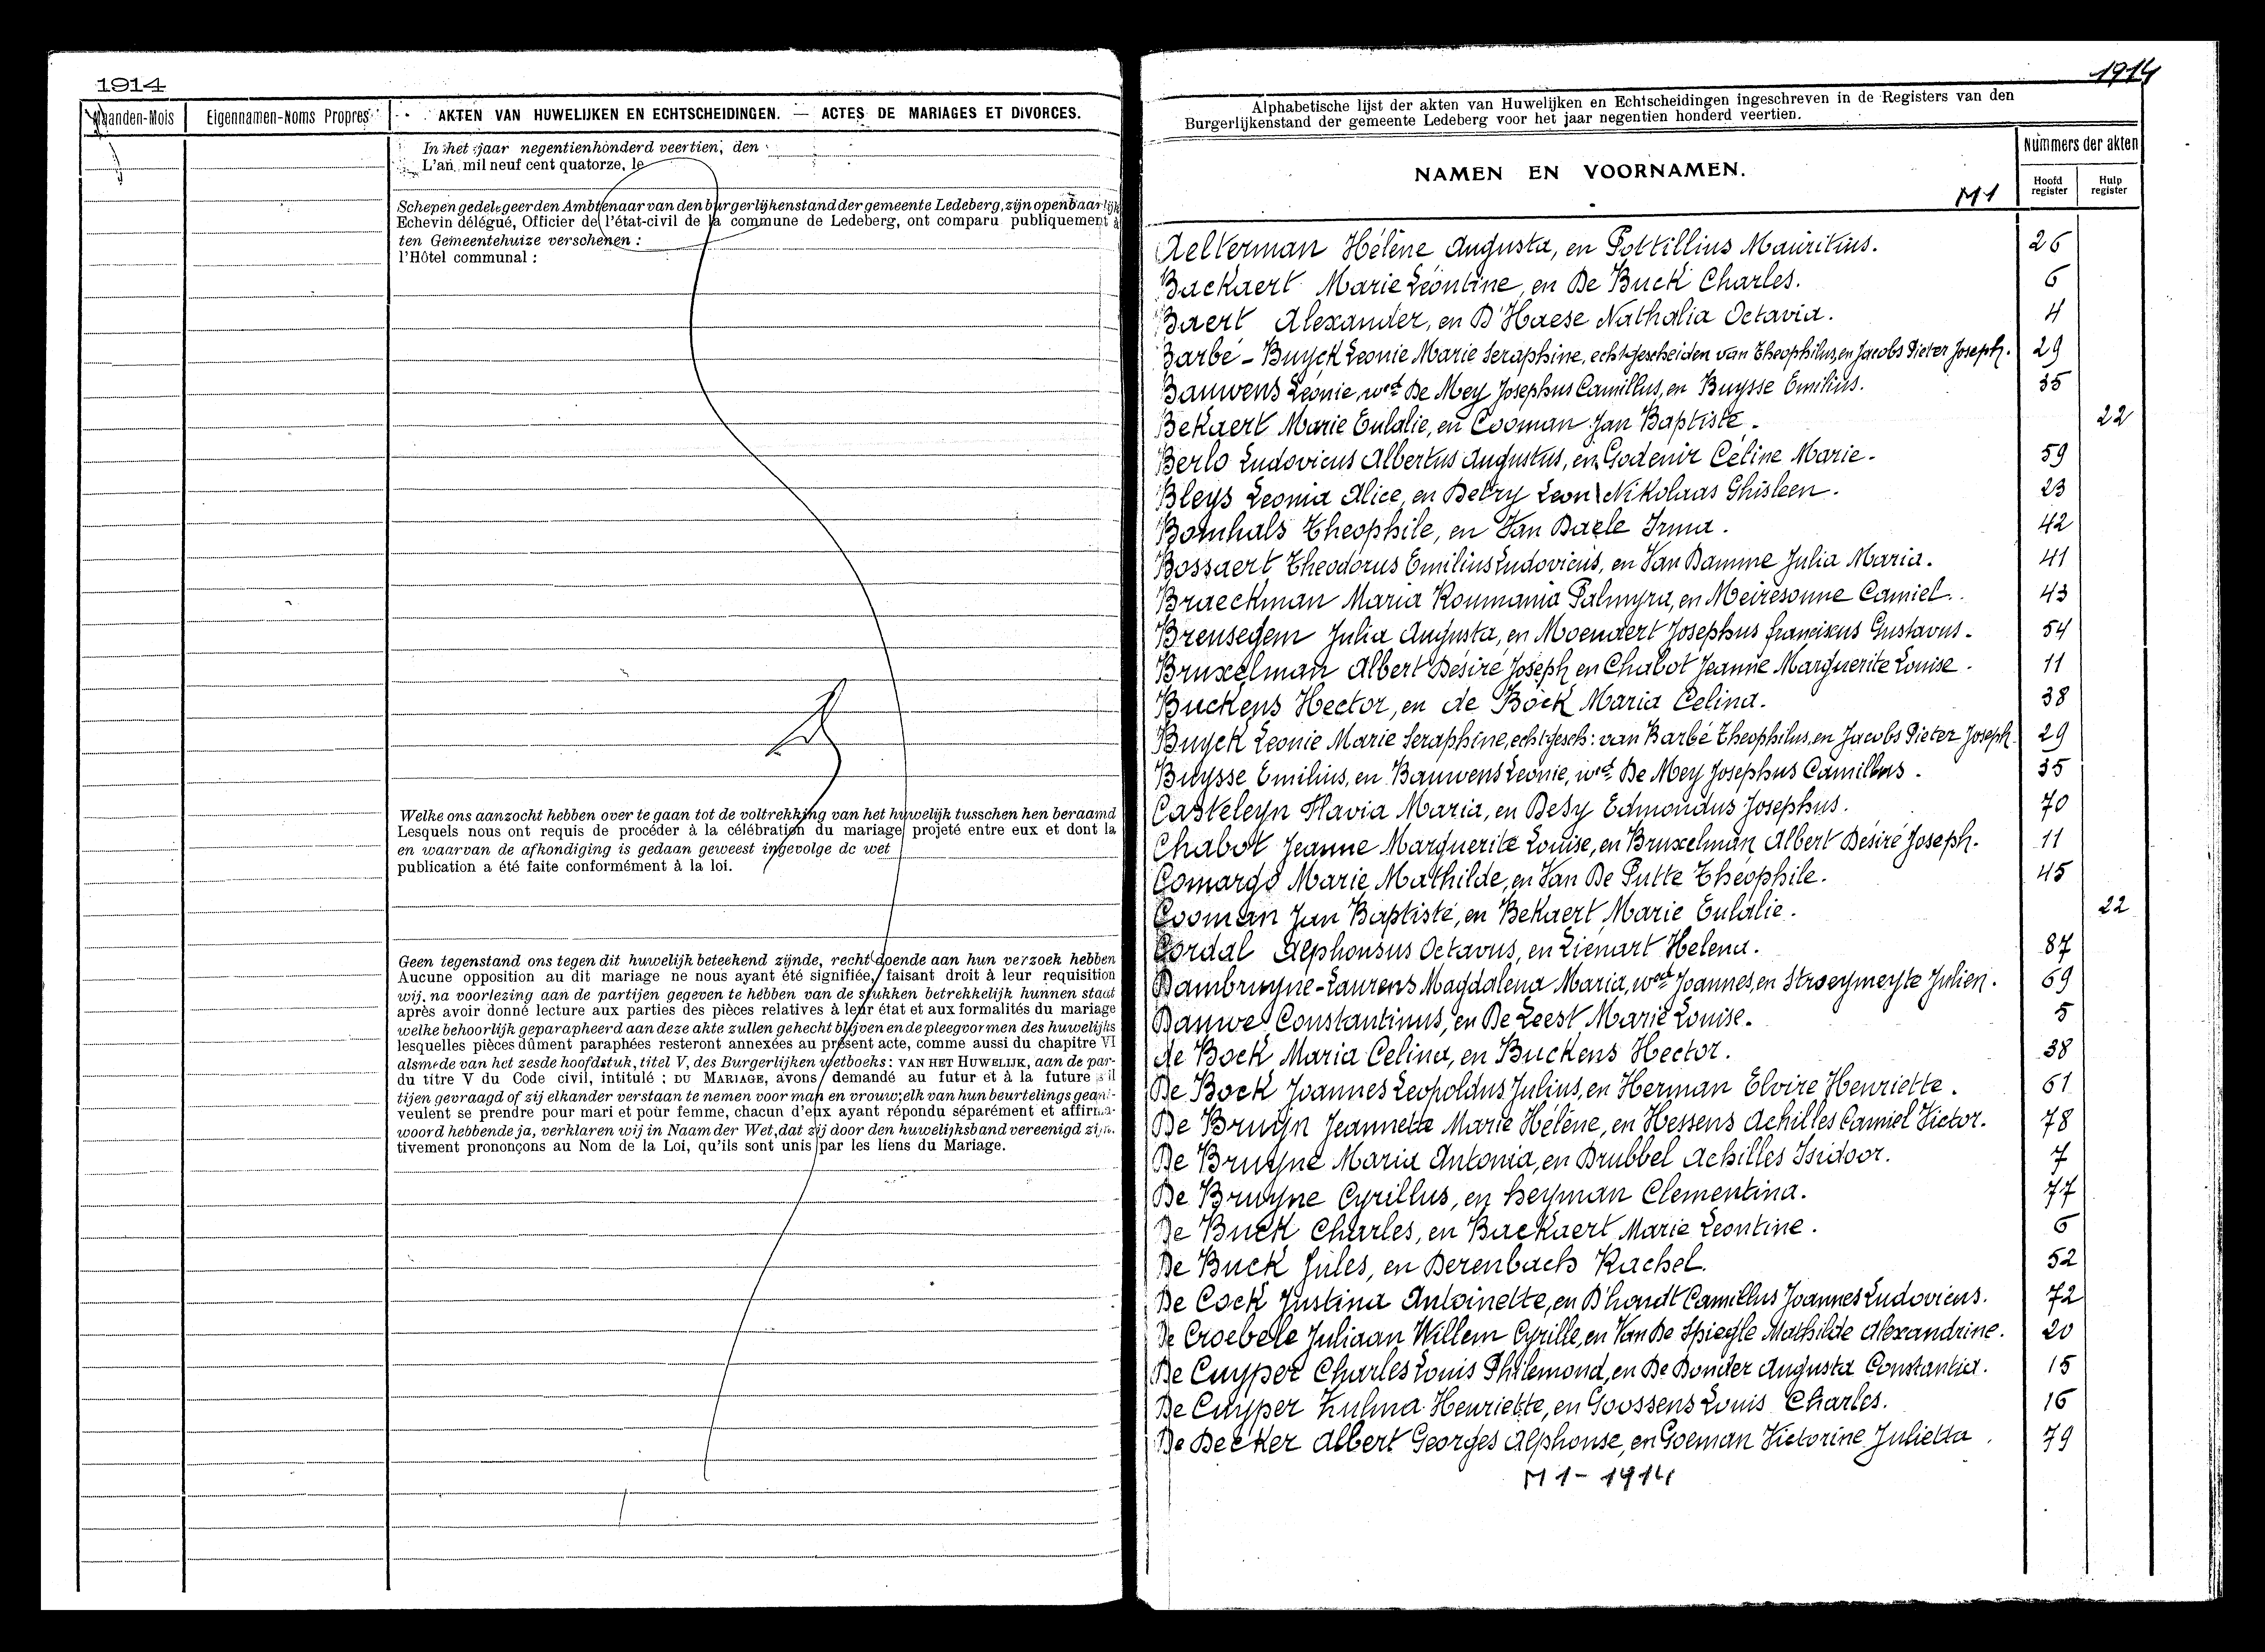 1914
Maanden-Mois Eigennamen-Noms Propres AKTEN VAN HUWELIJKEN EN ECHTSCHEIDINGEN. — ACTES DE MARIAGES ET DIVORCES.
In het jaar negentienhonderd veertien, den
L'an mil neuf cent quatorze, le
Schepen gedelegeerden Ambtenaar van den burgerlijkenstand der gemeente Ledeberg, zijn openbaarlijk
Echevin délégué, Officier de l'état-civil de la commune de Ledeberg, ont comparu publiquement à
ten Gemeentehuize verschenen :
l'Hôtel communal :
Welke ons aanzocht hebben over te gaan tot de voltrekking van het huwelijk tusschen hen beraamd
Lesquels nous ont requis de procéder à la célébration du mariage projeté entre eux et dont la
en waarvan de afkondiging is gedaan geweest ingevolge de wet
publication a été faite conformément à la loi.
Geen tegenstand ons tegen dit huwelijk beteekend zijnde, recht doende aan hun verzoek hebben
Aucune opposition au dit mariage ne nous ayant été signifiée, faisant droit à leur requisition
wij, na voorlezing aan de partijen gegeven te hebben van de stukken betrekkelijk hunnen staat
après avoir donné lecture aux parties des pièces relatives à leur état et aux formalités du mariage
welke behoorlijk geparapheerd aan deze akte zullen gehecht blijven en de pleegvormen des huwelijks
lesquelles pièces dûment paraphées resteront annexées au présent acte, comme aussi du chapitre VI
alsmede van het zesde hoofdstuk, titel V, des Burgerlijken wetboeks : VAN HET HUWELIJK, aan de par-
du titre V du Code civil, intitulé : DU MARIAGE, avons demandé au futur et à la future s'il
tijen gevraagd of zij elkander verstaan te nemen voor man en vrouw; elk van hun beurtelings geant-
veulent se prendre pour mari et pour femme, chacun d'eux ayant répondu séparément et affirma-
woord hebbende ja, verklaren wij in Naam der Wet, dat zij door den huwelijksband vereenigd zijn.
tivement prononçons au Nom de la Loi, qu'ils sont unis par les liens du Mariage.
1914
Alphabetische lijst der akten van Huwelijken en Echtscheidingen ingeschreven in de Registers van den
Burgerlijkenstand der gemeente Ledeberg voor het jaar negentien honderd veertien.
NAMEN EN VOORNAMEN. Nummers der akten
M1 Hoofd register Hulp register
Aelterman Hélène Augusta, en Pottillius Mauritius. 26
Backaert Marie Léontine, en De Buck Charles. 6
Baert Alexander, en D'Haese Nathalia Octavia. 4
Barbé - Buyck Leonie Marie Seraphine, echtgescheiden van Theophilus, en Jacobs Pieter Joseph. 29
Bauwens Léonie, wed. De Mey Josephus Camillus, en Buysse Emilius. 35
Bekaert Marie Eulalie, en Cooman Jan Baptiste. 22
Berlo Ludovicus Albertus Augustus, en Godenir Céline Marie. 59
Bleys Leonia Alice, en Detry Leon Nikolaas Ghisleen. 23
Bomhals Theophile, en Van Daele Irma. 42
Bossaert Theodorus Emilius Ludovicus, en Van Damme Julia Maria. 41
Braeckman Maria Roumania Palmyra, en Meiresonne Camiel. 43
Breusegem Julia Augusta, en Moenaert Josephus franciscus Gustavus. 54
Bruxelman Albert Désiré Joseph en Chabot Jeanne Marguerite Louise. 11
Buckens Hector, en de Bock Maria Celina. 38
Buyck Leonie Marie Seraphine, echtgesch: van Barbé Theophilus, en Jacobs Pieter Joseph 29
Buysse Emilius, en Bauwens Leonie, wed. De Mey Josephus Camillus. 35
Casteleyn Flavia Maria, en Desy Edmondus Josephus. 70
Chabot Jeanne Marguerite Louise, en Bruxelman Albert Désiré Joseph. 11
Comargo Marie Mathilde, en Van De Putte Théophile. 45
Cooman Jan Baptiste, en Bekaert Marie Eulalie. 22
Cordal Alphonsus Octavus, en Liénart Helena. 87
Dambruyne-Laurens Magdalena Maria, wed. Joannes, en Stroeymeyte Julien. 69
Dauwe Constantinus, en De Leest Marie Louise. 5
de Bock Maria Celina, en Buckens Hector. 38
De Bock Joannes Leopoldus Julius, en Herman Elvire Henriette. 61
De Bruyn Jeannette Marie Hélène, en Hessens Achilles Camiel Victor. 78
De Bruyne Maria Antonia, en Drubbel Achilles Isidoor. 7
De Bruyne Cyrillus, en Heyman Clementina. 77
De Buck Charles, en Backaert Marie Leontine. 6
De Buck Jules, en Derenbach Rachel. 52
De Cock Justina Antoinette, en D'hondt Camillus Joannes Ludovicus. 72
De Croebele Juliaan Willem Cyrille, en Van De Spiegle Mathilde Alexandrine. 20
De Cuyper Charles Louis Philemond, en De Donder Augusta Constantia. 15
De Cuyper Zulma Henriette, en Goossens Louis Charles. 16
De Decker Albert Georges Alphonse, en Goeman Victorine Julietta. 79
M 1 - 1914